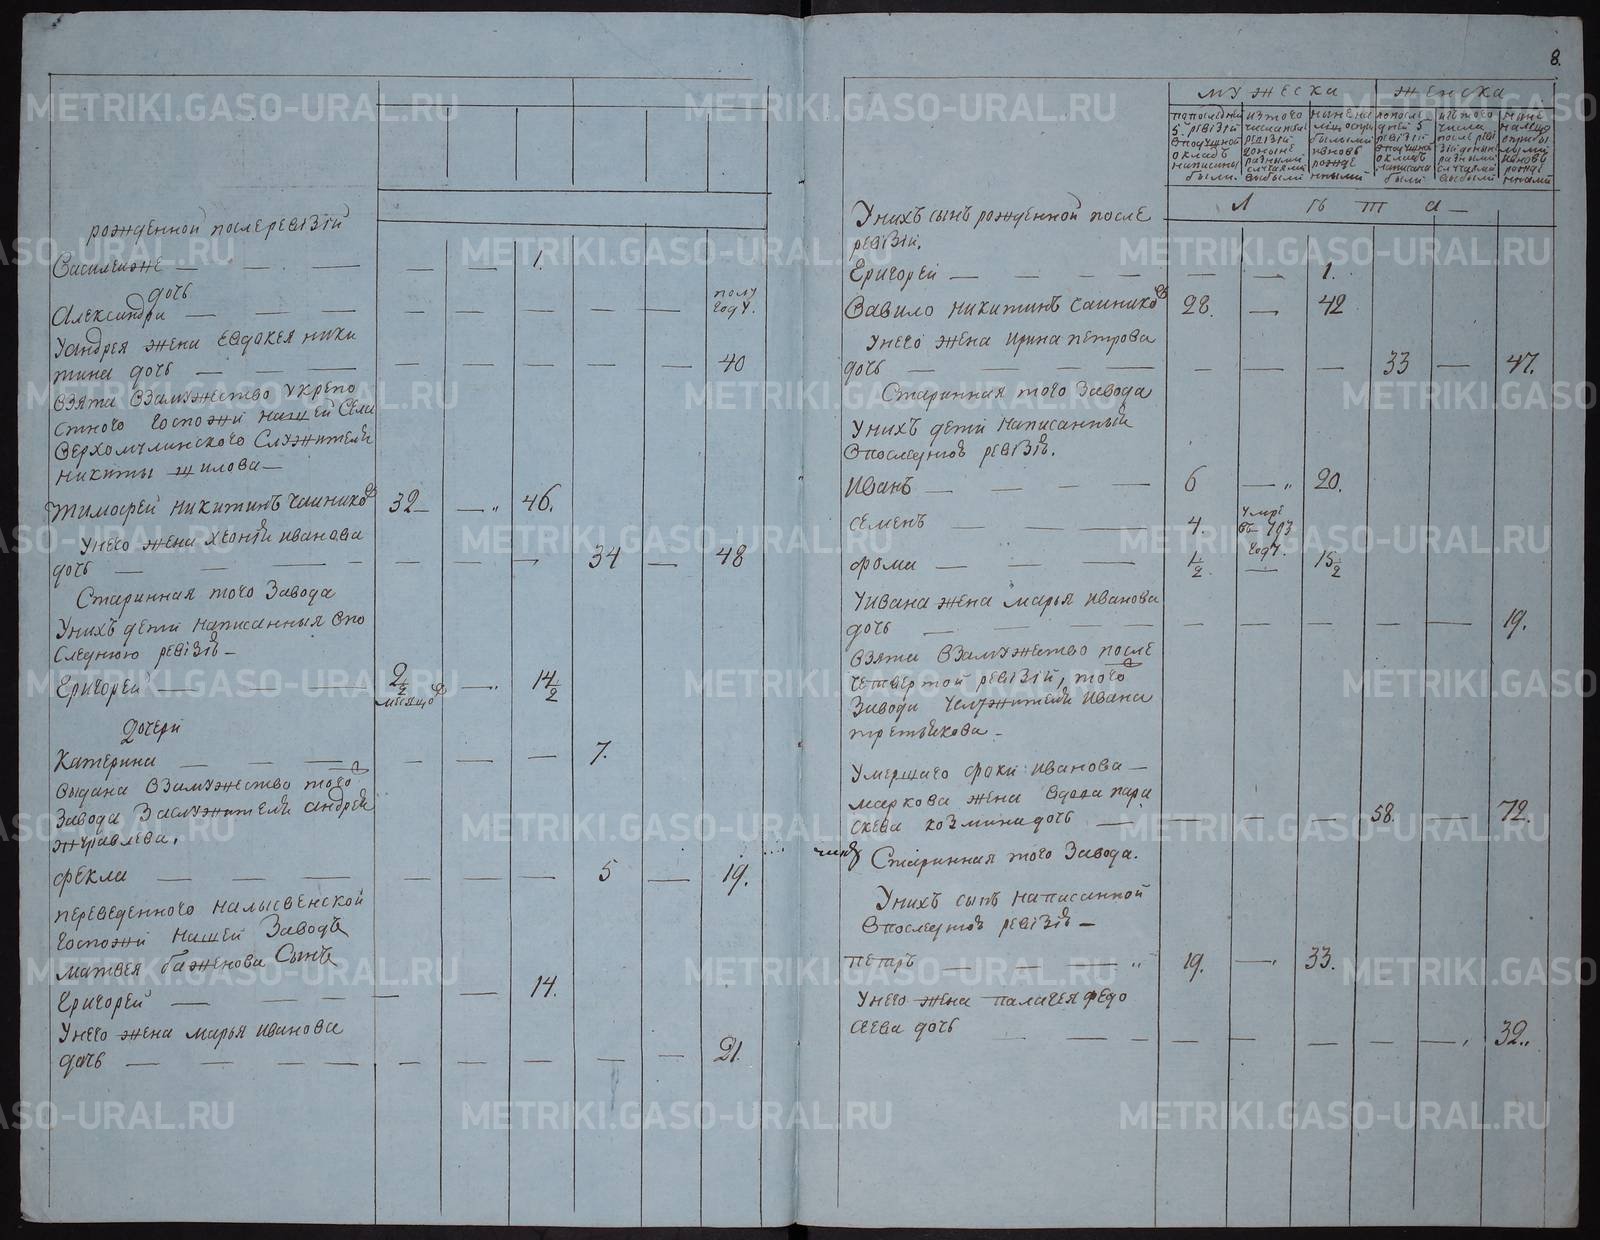 рожденной послеревизiи
Василейже — — — — — 1.
дочь
Александра — — — — — — — — полу году.
Уандрея жена Евдокея ники
тина дочь — — — — — — — — 40
взята взамужество Укрепо
стного госпожи нашей Села
Верхомулинского Служителя
никиты шилова—
Тимофей никитинъ Чаиниковъ 32 — — 46.
Унего жена хеонiя иванова
дочь — — — — — — 34 — 48
Старинная того Завода
Унихъ дети написанныя впо
следнюю ревiзiю —
Григорей — — — 2/2 месяцовъ — 14/2
Дочери
Катерина — — — — — — 7.
выдана взамужество того
Завода Заслужителя андрея
журавлева.
фекла — — — — — — 5 — 19.
переведенного налысвенской
госпожи нашей Заводъ
матвея баженова Сынъ
Григорей — — — — — 14.
Унего жена марья иванова
дочь — — — — — — — — — 21.
8.
мужеска женска
попоследней 5. ревiзiи вподушной окладъ написаны были.
изтого числапосле ревiзiи доныне разными случаями выбыли
Л ѣ т а —
Унихъ сынъ рожденной после
ревiзiи.
Григорей — — — — — — 1.
Вавило никитинъ Чаиниковъ 28. — 42
Унего жена ирина петрова
дочь — — — — — — — 33 — 47.
Старинная того Завода
Унихъ дети написанныи
впоследнюю ревiзiю.
иванъ — — — — 6 — 20.
семенъ — — — 4. умре въ 703 году
фома — — — 1/2. — 15/2
Уивана жена марья иванова
дочь — — — — — — — — — 19.
взята взамужество после
четвертой ревiзiи, того
Завода Услужителя ивана
третьякова —
Умершаго фоки иванова —
маркова жена вдова пара
скева козминадочь — — — — 58. — 72.
Старинная того Завода.
Унихъ сынъ написанной
впоследнюю ревiзiю —
петръ — — — 19. — 33.
Унего жена палагея федо
сеева дочь — — — — — — — — 32.
METRIKI.GASO-URAL.RU